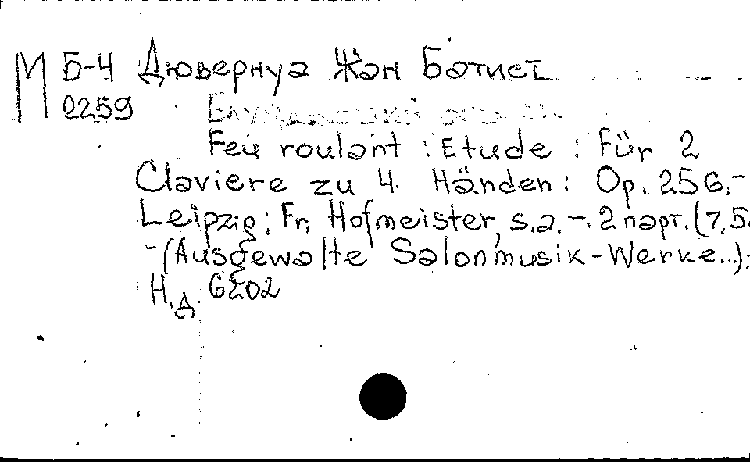 М Б-4 Дювернуа Жан Батист
0259
Feu roulant : Etude : Für 2
Claviere zu 4 Händen : Op. 256.-
Leipzig : Fr. Hofmeister, s.a. -. 2 парт. (7,5
-(Ausgewalte Salonmusik-Werke..).
Н.д. 6202